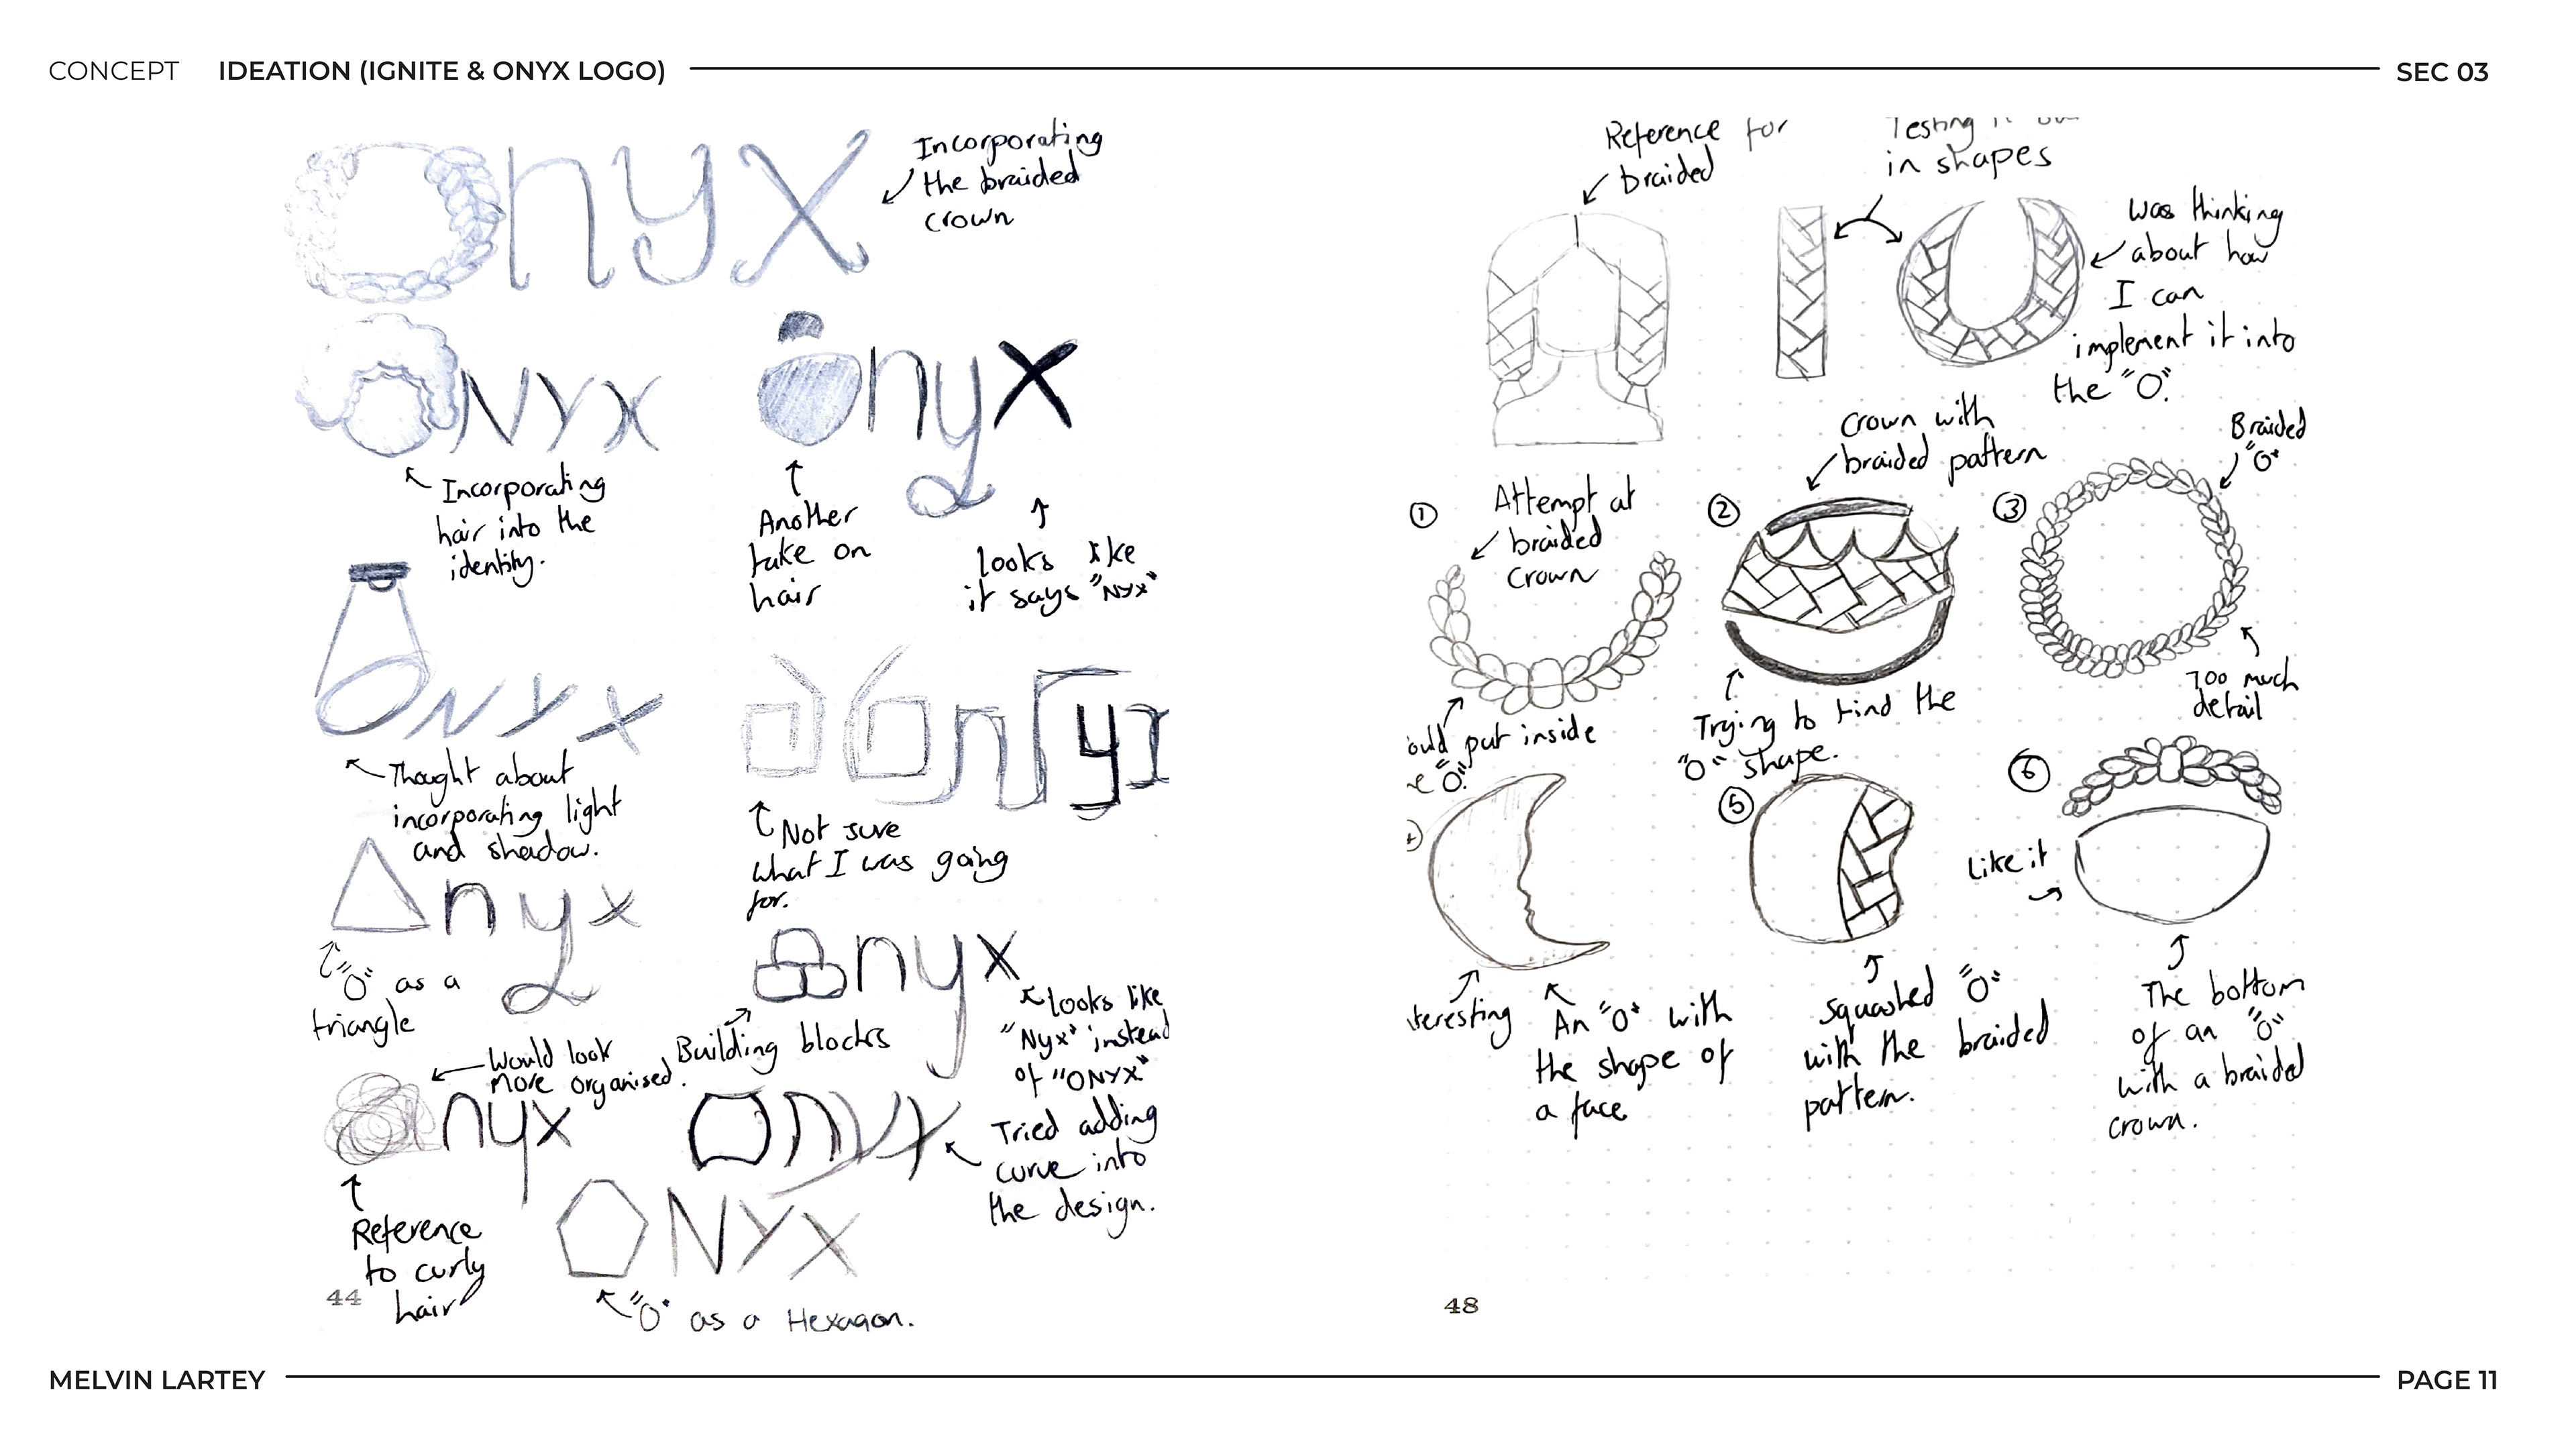 CONCEPT IDEATION (IGNITE & ONYX LOGO) SEC 03
Onyx
Incorporating
the braided
crown
ONYX
Incorporating
hair into the
identity.
Onyx
Another
take on
hair
looks like
it says "NYX"
ONYX
Thought about
incorporating light
and shadow.
Onyx
Not sure
what I was going
for.
nyx
"O" as a
triangle
nyx
Building blocks
looks like
"Nyx" instead
of "ONYX"
nyx
Would look
more organised.
Reference
to curly
hair
Onyx
Tried adding
curve into
the design.
ONYX
"O" as a Hexagon.
44
Reference for
braided
Testing it
in shapes
Was thinking
about how
I can
implement it into
the "O".
1
Attempt at
braided
crown
put inside
"O".
2
Crown with
braided pattern
Trying to find the
"O" shape.
3
Braided
"O"
Too much
detail
An "O" with
the shape of
a face
5
Squashed "O"
with the braided
pattern.
6
Like it
The bottom
of an "O"
with a braided
crown.
48
MELVIN LARTEY PAGE 11